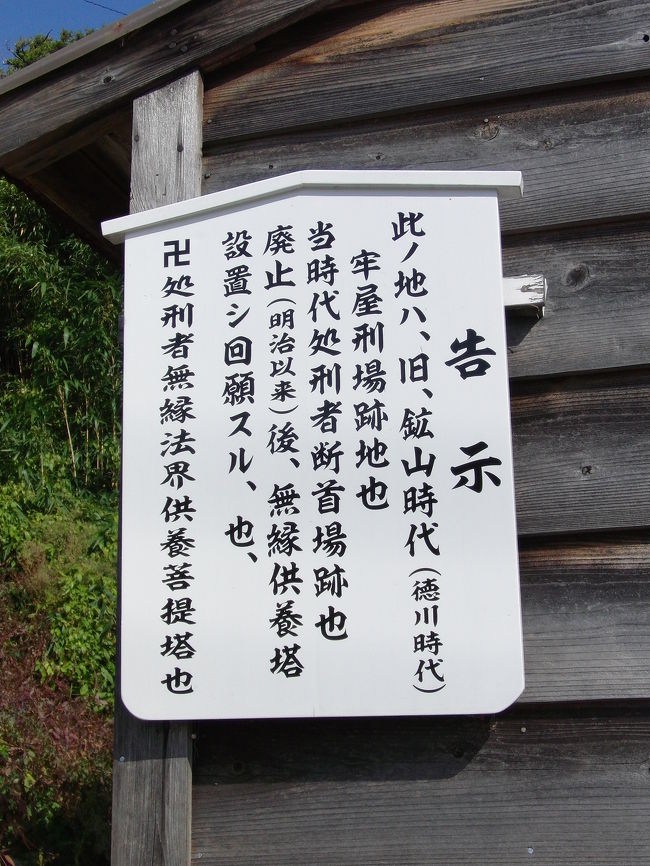 告示
此ノ地ハ、旧、鉱山時代(徳川時代)
牢屋刑場跡地也
当時代処刑者断首場跡也
廃止(明治以来)後、無縁供養塔
設置シ回願スル、也、
卍処刑者無縁法界供養菩提塔也